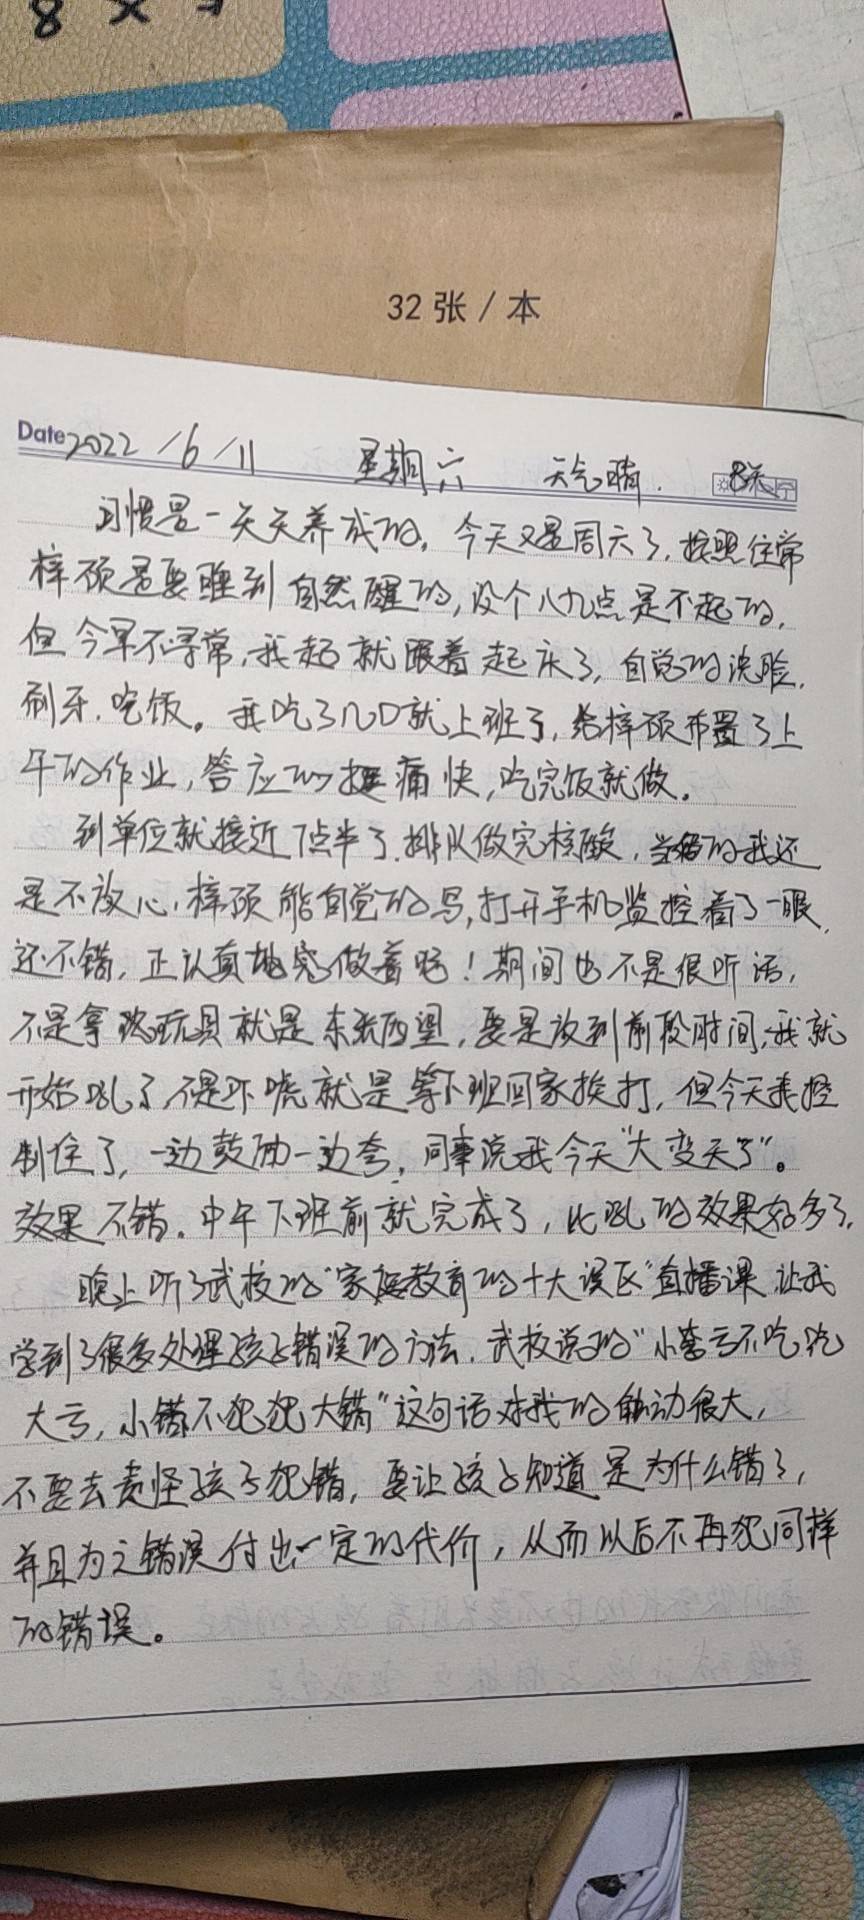 8
32张/本
Date 2022/6/11 星期六 天气晴. 8天
习惯是一天天养成的，今天又是周六了，按照往常
梓硕是要睡到自然醒的，没个八九点是不起的，
但今早不寻常，我起就跟着起床了，自觉的洗脸，
刷牙，吃饭。我吃了几口就上班了，给梓硕布置了上
午的作业，答应的挺痛快，吃完饭就做。
到单位就接近7点半了，排队做完核酸，当妈的我还
是不放心，梓硕能自觉的写，打开手机监控看了一眼，
还不错，正认真地做着呢！期间也不是很听话，
不是拿玩具就是东张西望，要是放到前段时间，我就
开始吼了，不是吓唬就是等下班回家挨打，但今天我控
制住了，一边鼓励一边夸，同事说我今天“大变天了”。
效果不错。中午下班前就完成了，比吼的效果好多了，
晚上听了武校的“家庭教育的十大误区”直播课，让我
学到了很多处理孩子错误的方法，武校说的“小亏不吃吃
大亏，小错不犯犯大错”这句话对我的触动很大，
不要去责怪孩子犯错，要让孩子知道是为什么错了，
并且为之错误付出一定的代价，从而以后不再犯同样
的错误。